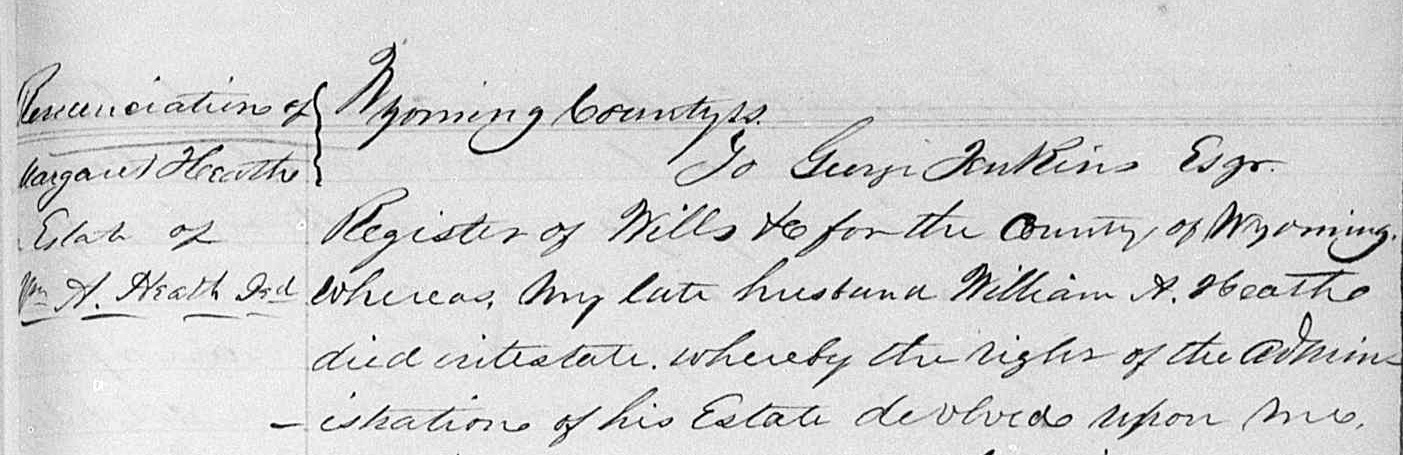 Renunciation of
Margaret Heath
Estate of
Wm A. Heath Decd
Wyoming County ss.
To George Jenkins Esqr.
Register of Wills &c for the County of Wyoming.
Whereas, My late husband William A. Heath
died intestate. whereby the right of the admin-
-istration of his Estate devolved upon me,